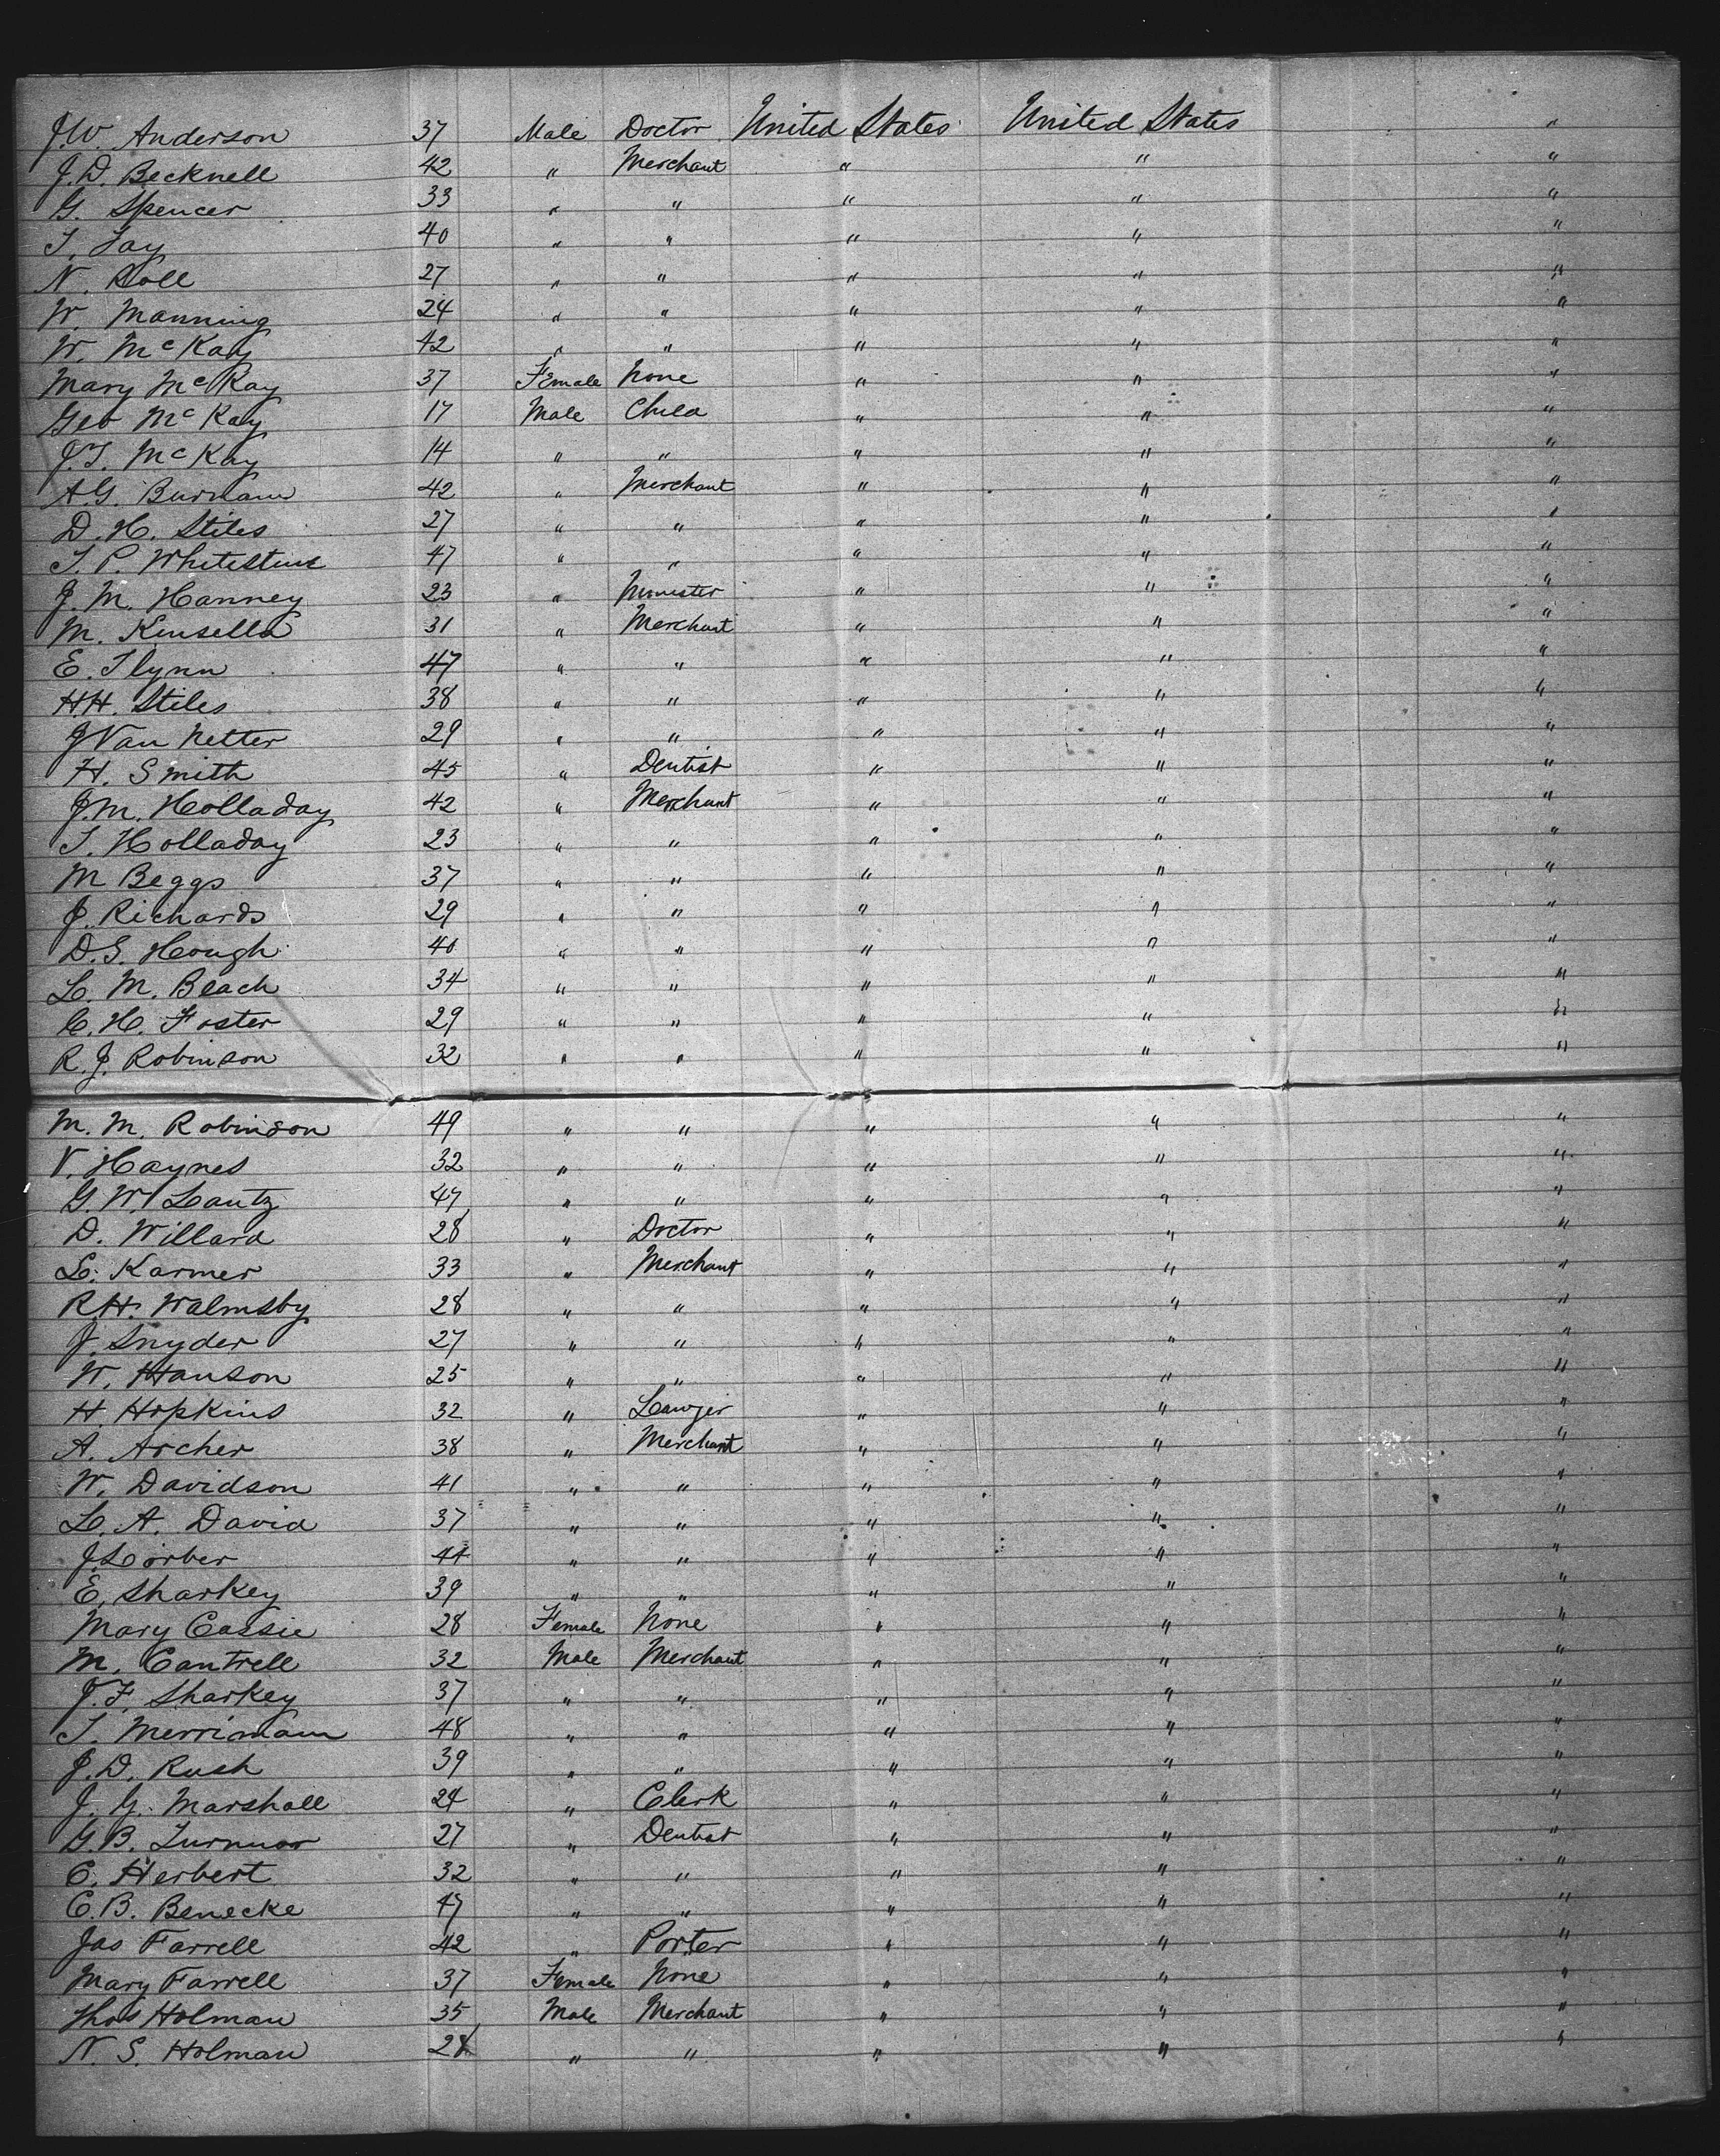 J.W. Anderson 37 Male Doctor United States United States "
J.D. Becknell 42 " Merchant " " "
G. Spencer 33 " " " " "
T. Fay 40 " " " " "
N. Roll 27 " " " " "
W. Manning 24 " " " " "
W. McKay 42 " " " " "
Mary McKay 37 Female None " " "
Geo McKay 17 Male Child " " "
J.T. McKay 14 " " " " "
A.G. Burnam 42 " Merchant " " "
D.H. Stiles 27 " " " " "
T.P. Whitestine 47 " " " " "
J.M. Hanney 23 " Minister " " "
M. Kinsella 31 " Merchant " " "
E. Flynn 47 " " " " "
H.H. Stiles 38 " " " " "
J Van Netter 29 " " " " "
H. Smith 45 " Dentist " " "
J.M. Holladay 42 " Merchant " " "
T. Holladay 23 " " " " "
M Beggs 37 " " " " "
J. Richards 29 " " " " "
D.S. Hough 40 " " " " "
L.M. Beach 34 " " " " "
C.H. Foster 29 " " " " "
R.J. Robinson 32 " " " " "
M.M. Robinson 49 " " " " "
V. Haynes 32 " " " " "
G.W. Lantz 47 " " " " "
D. Willard 28 " Doctor " " "
L. Karmer 33 " Merchant " " "
R.H. Walmsby 28 " " " " "
J. Snyder 27 " " " " "
W. Hanson 25 " " " " "
H. Hopkins 32 " Lawyer " " "
A. Archer 38 " Merchant " " "
W. Davidson 41 " " " " "
L.A. David 37 " " " " "
J. Lorber 44 " " " " "
E. Sharkey 39 " " " " "
Mary Cassie 28 Female None " " "
M. Cantrell 32 Male Merchant " " "
J.F. Sharkey 37 " " " " "
T. Merrimam 48 " " " " "
J.D. Rush 39 " " " " "
J.G. Marshall 24 " Clerk " " "
G.B. 27 " Dentist " " "
C. Herbert 32 " " " " "
C.B. Benecke 47 " " " " "
Jas Farrell 42 " Porter " " "
Mary Farrell 37 Female None " " "
Thos Holman 35 Male Merchant " " "
N.S. Holman 28 " " " " "